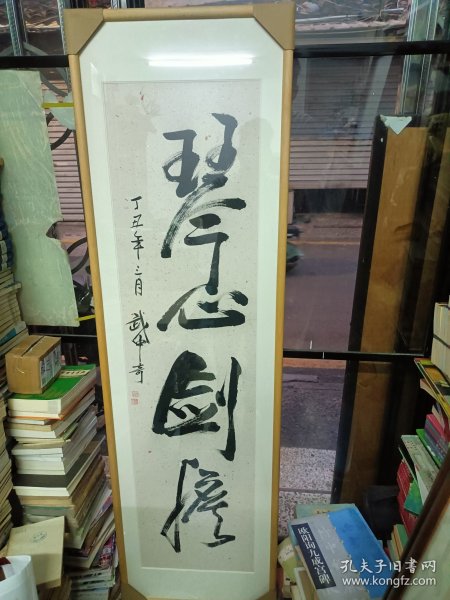 琴心剑胆
丁丑年三月 武中奇
欧阳询九成宫碑
孔夫子旧书网
www.kongfz.com